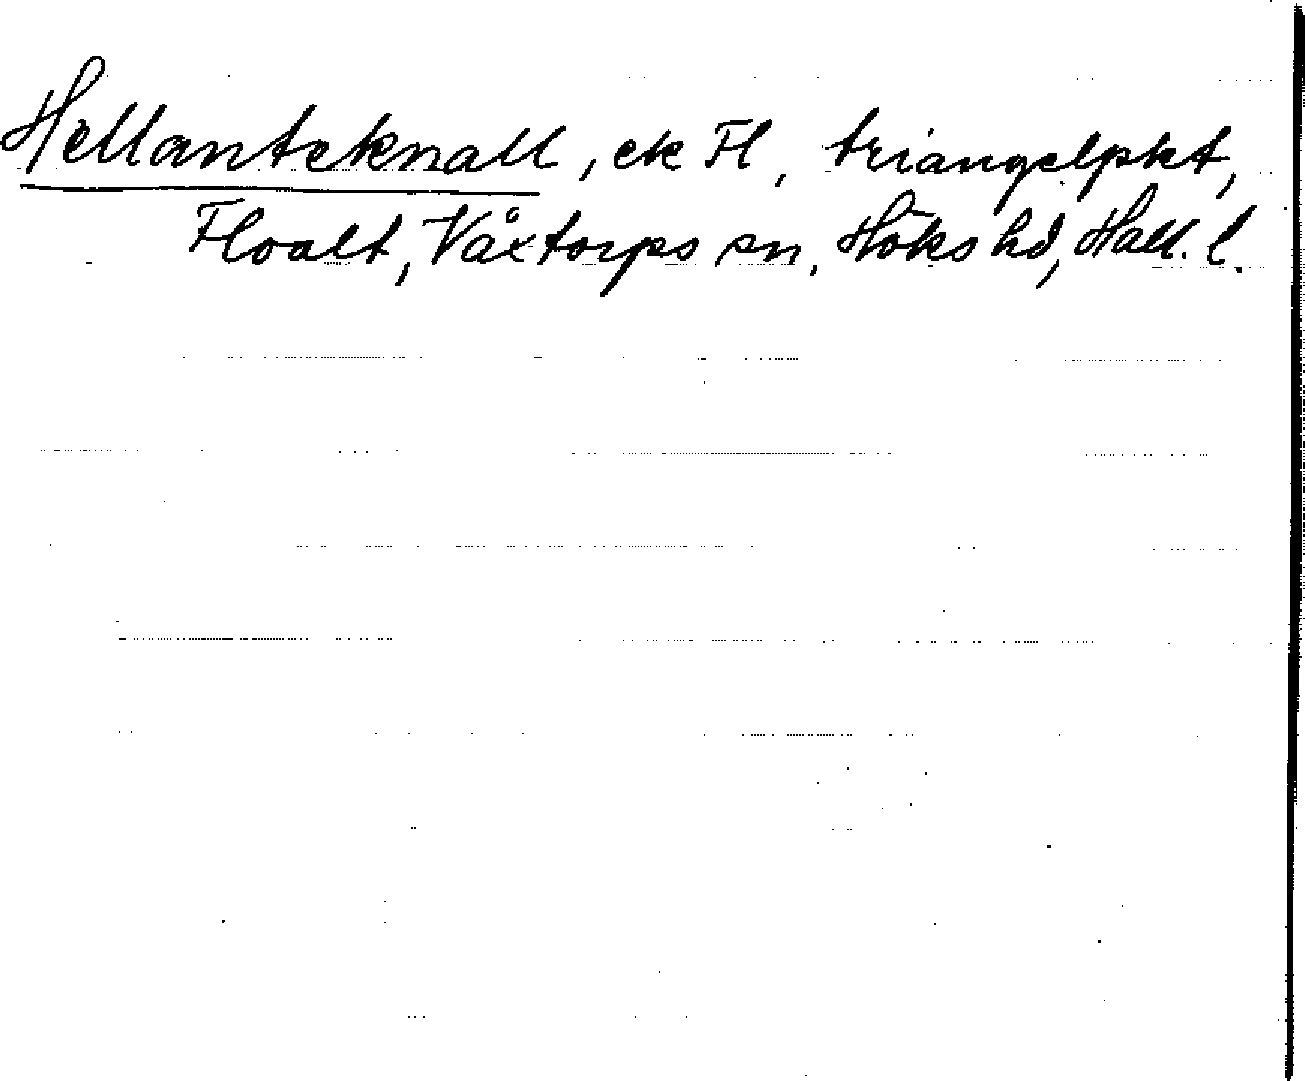 Hellanteknall, ek Fl, triangelpkt,
Floalt, Våxtorps sn, Höks hd, Hall. l.